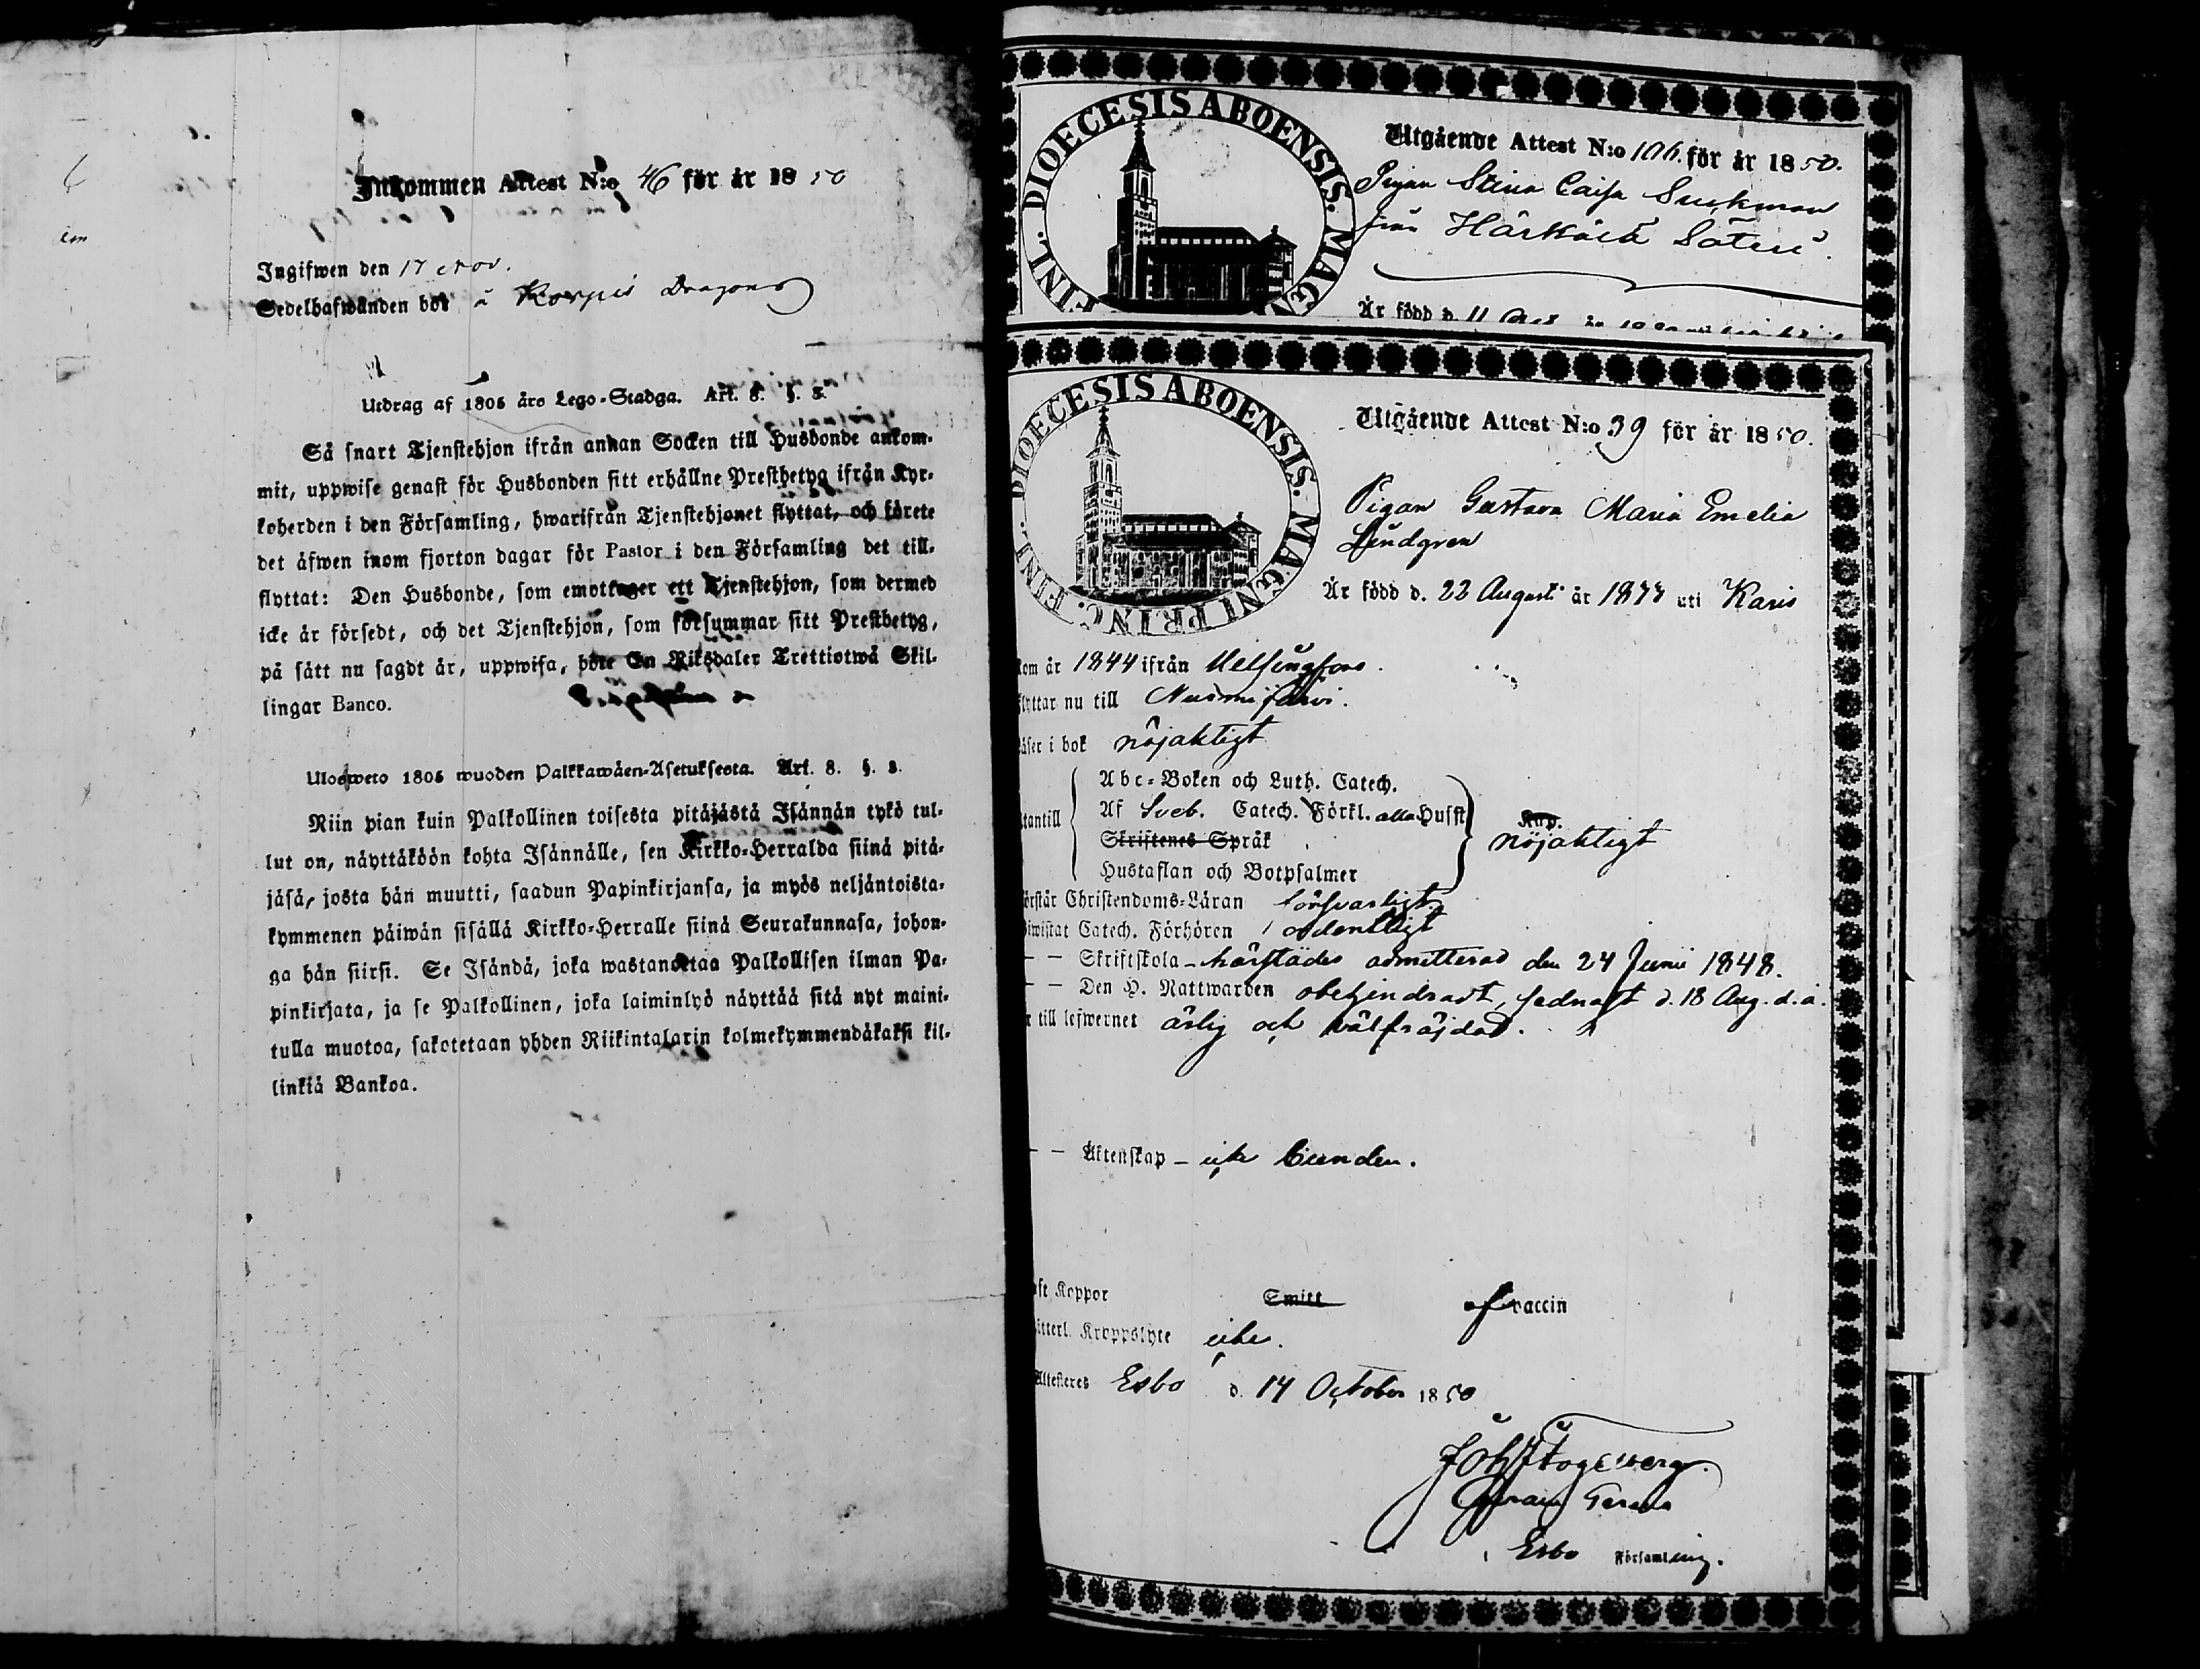 Inkommen Attest N:o 46 för år 1850
Ingifwen den 17 Nov.
Sedelhafwanden bor å Korpis Dragons
Utdrag af 1805 års Lego-Stadga. Art. 8. §. 3.
Så snart Tjenstehjon ifrån annan Socken till Husbonde ankom-
mit, uppwise genast för Husbonden sitt erhållne Prestbetyg ifrån Kyr-
koherden i den Församling, hwarifrån Tjenstehjonet flyttat, och förete
det äfwen inom fjorton dagar för Pastor i den Församling det till-
flyttat: Den Husbonde, som emottager ett Tjenstehjon, som dermed
icke är försedt, och det Tjenstehjon, som försummar sitt Prestbetyg,
på sätt nu sagdt är, uppwisa, böte En Riksdaler Trettiotwå Skil-
lingar Banco.
Ulosweto 1805 wuoden Palkkawäen-Asetuksesta. Art. 8. §. 3.
Niin pian kuin Palkollinen toisesta pitäjästä Isännän tykö tul-
lut on, näyttäköön kohta Isännälle, sen Kirkko-Herralda siinä pitä-
jäsä, josta hän muutti, saadun Papinkirjansa, ja myös neljäntoista-
kymmenen päiwän sisällä Kirkko-Herralle siinä Seurakunnasa, johon-
ga hän siirsi. Se Isändä, joka wastanottaa Palkollisen ilman Pa-
pinkirjata, ja se Palkollinen, joka laiminlyö näyttää sitä nyt maini-
tulla muotoa, sakotetaan yhden Riikintalarin kolmekymmendäkaksi kil-
linkiä Bankoa.
DIOECESIS ABOENSIS. MAGN FINL.
Utgående Attest N:o 106. för år 1850.
Pigan Stina Caisa
från Härkälä Säteri.
Är född d. 11
DIOECESIS ABOENSIS. MAGNI PRINC. FINL.
Utgående Attest N:o 39 för år 1850.
Pigan Gustava Maria Emelia
Lindgren
Är född d. 22 Augusti år 1833 uti Karis
kom år 1844 ifrån Helsingfors.
flyttar nu till Nurmijärvi.
läser i bok nöjaktigt
utantill
Abc-Boken och Luth. Catech.
Af Sveb. Catech. Förkl. alla Hufst
Skriftenes Språk
Hustaflan och Botpsalmer
Kap.
nöjaktigt
förstår Christendoms-Läran försvarligt
biwistat Catech. Förhören ordentligt
— — Skriftskola - härstädes admitterad den 24 Junii 1848.
— — Den H. Nattwarden obehindradt, sednast d. 18 Aug. d. å.
är till lefwernet ärlig och välfräjdad.
— — Äktenskap - icke bunden.
haft Koppor Smitt af vaccin
Kroppslyte icke.
Attesteres Esbo d. 14 October 1850
i Esbo Församling.